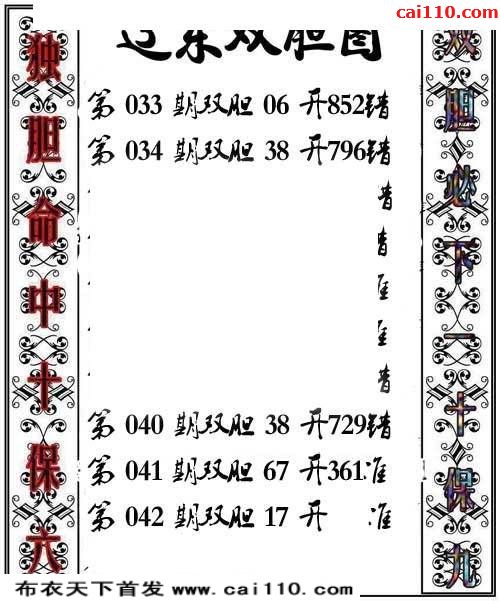 cai110.com
辽东双胆图
第 033 期双胆 06 开852错
第 034 期双胆 38 开796错
错
错
准
准
错
第 040 期双胆 38 开729错
第 041 期双胆 67 开361准
第 042 期双胆 17 开 准
独胆命中十保六
双胆必下一十保九
布衣天下首发 www.cai110.com